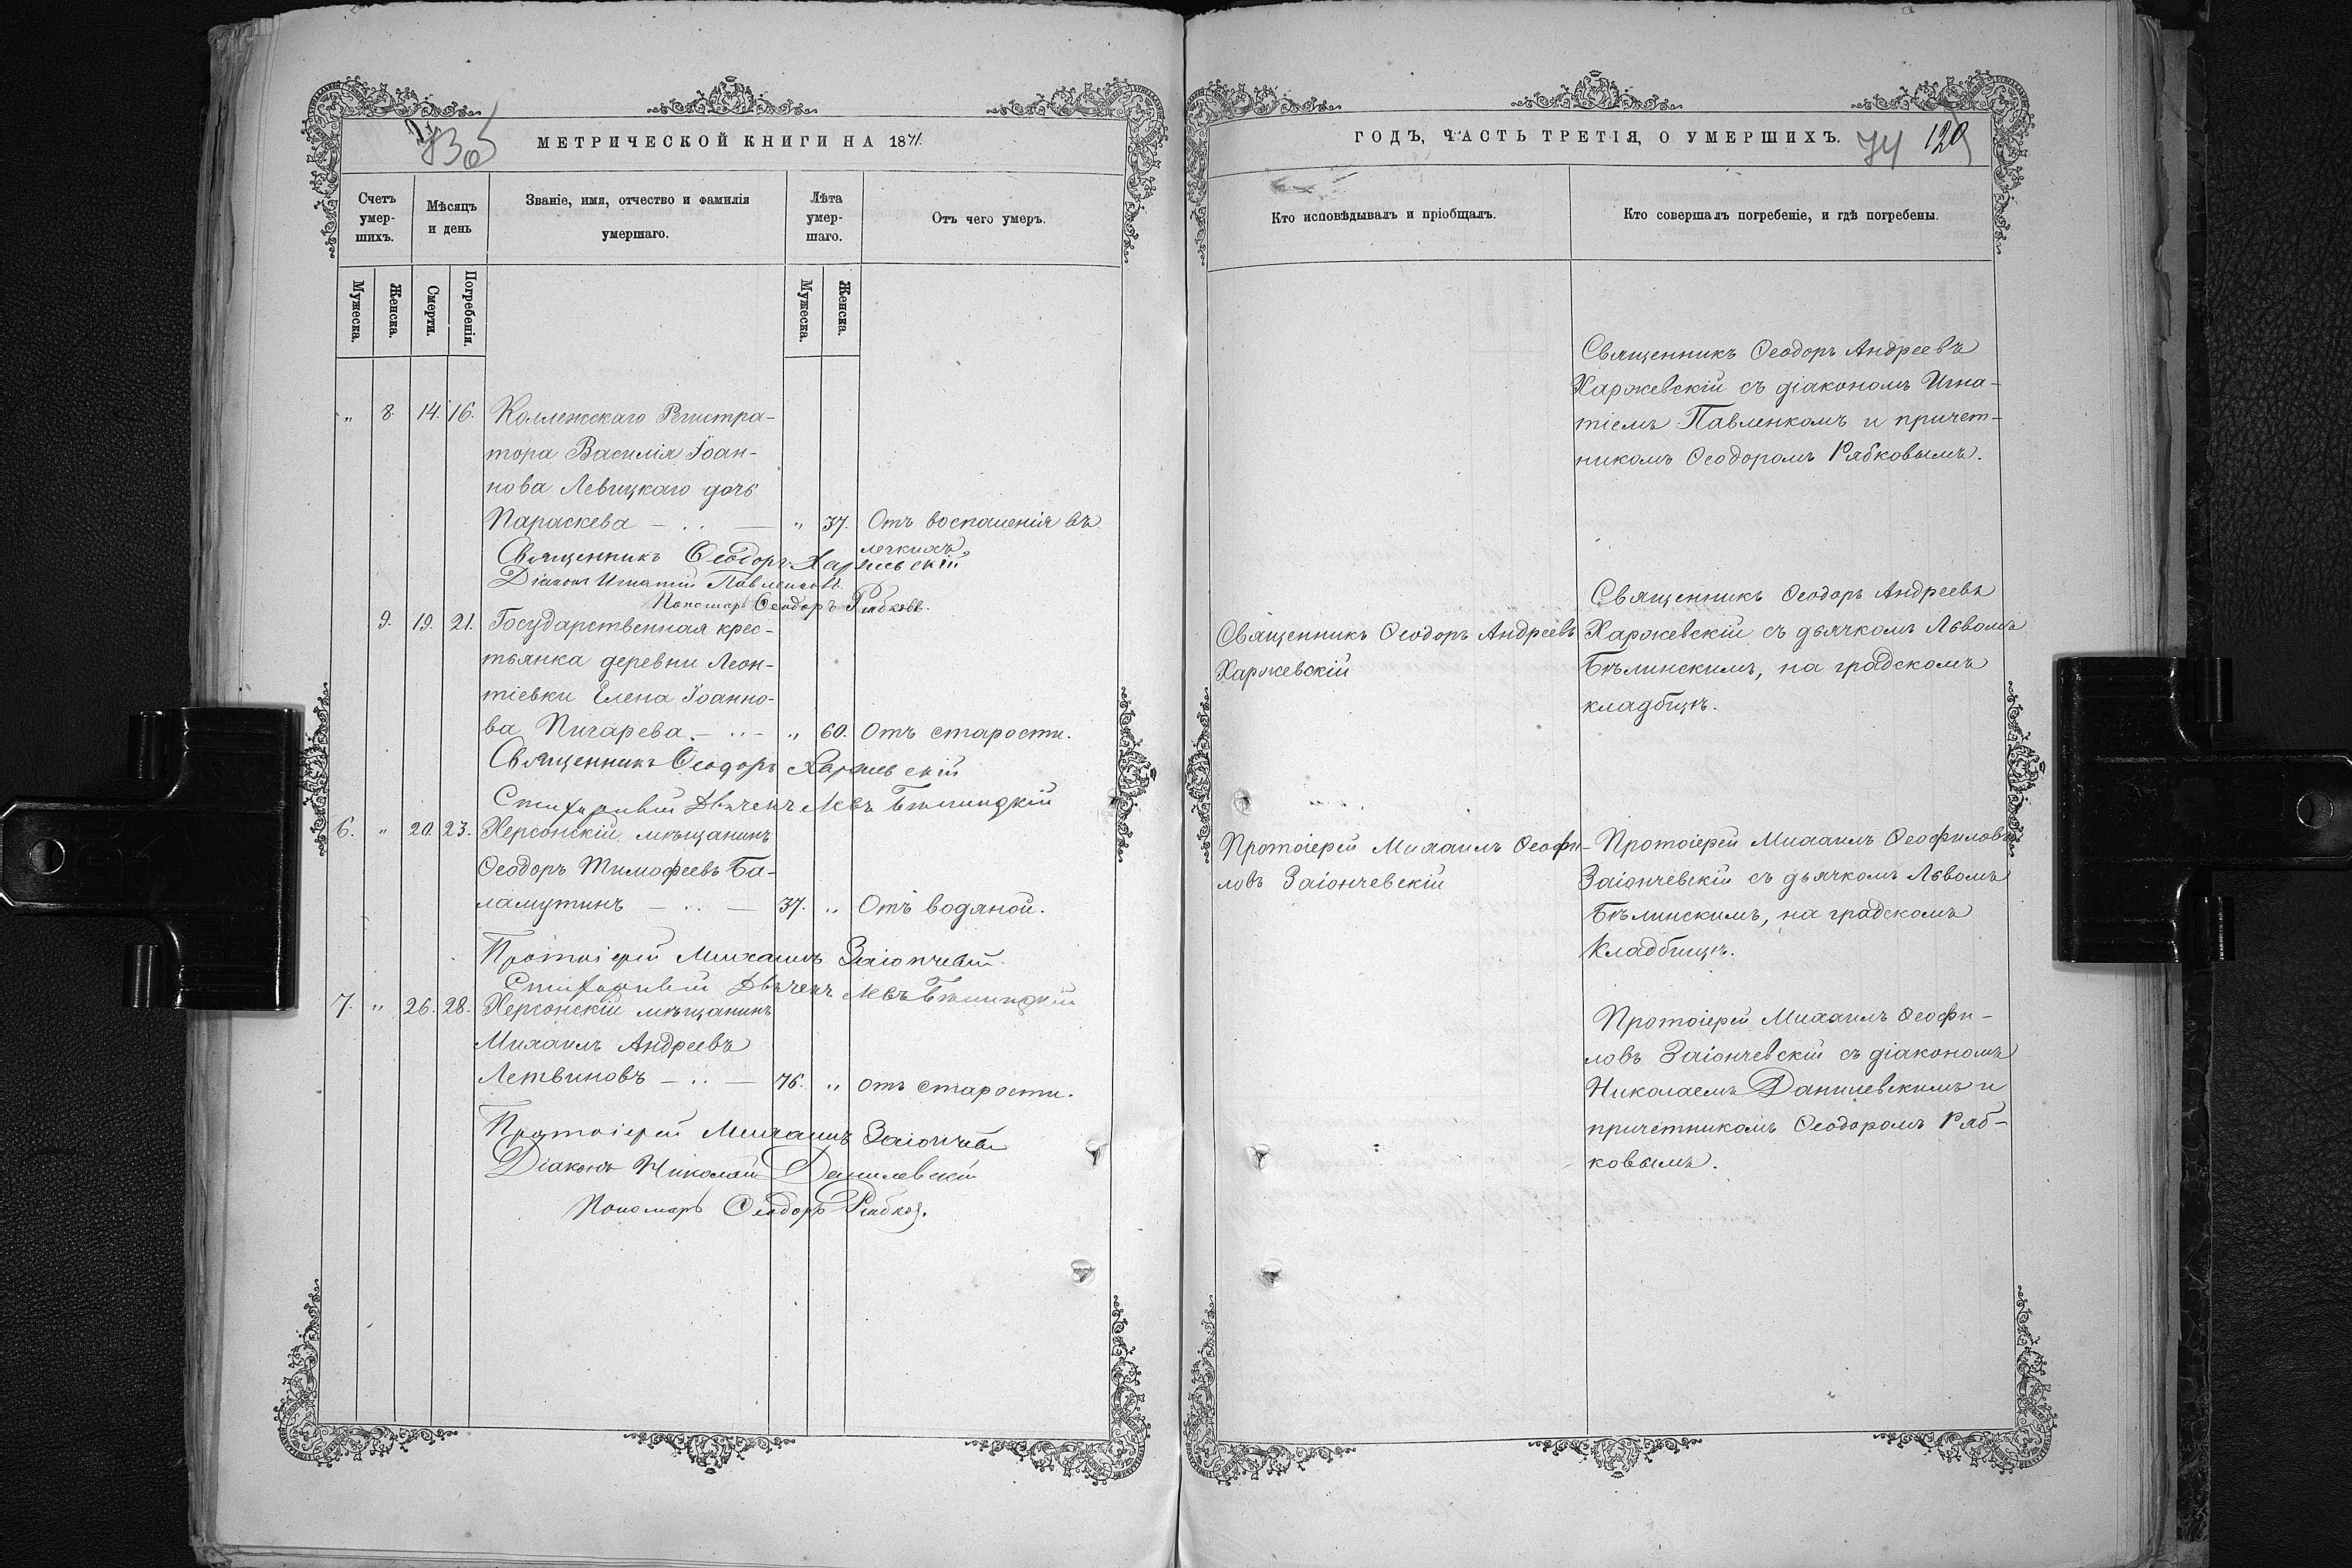 МЕТРИЧЕСКОЙ КНИГИ НА 1871.
Счетъ умер-шихъ.
Мѣсяцъ и день
Званіе, имя, отчество и фамилія умершаго.
Лѣта умер-шаго.
Отъ чего умеръ.
Мужеска. Женска. Смерти. Погребенія. Мужеска. Женска.
„ 8. 14. 16. Коллежскаго Регистра-
тора Василія Іоан-
нова Левицкаго дочь
Параскева — .. — „ 37. Отъ воспаленія въ
легкихъ.
Священникъ Ѳеодоръ Харжевскій
Діаконъ Игнатій Павленковъ
Пономарь Ѳеодоръ Рябковъ.
9. 19. 21. Государственная крес-
тьянка деревни Леон-
тіевки Елена Іоанно-
ва Пигарева. — .. — „ 60. Отъ старости.
Священникъ Ѳеодоръ Харжевскій
Стихарный Дьячекъ Левъ Бѣлинскій
6. „ 20. 23. Херсонскій мѣщанинъ
Ѳеодоръ Тимофеевъ Ба-
ламутинъ — .. — 37. „ Отъ водяной.
Протоіерей Михаилъ Заіончевскій.
Стихарный Дьячекъ Левъ Бѣлинскій
7. „ 26. 28. Херсонскій мѣщанинъ
Михаилъ Андреевъ
Летвиновъ — .. — 76. „ отъ старости.
Протоіерей Михаилъ Заіончевскій
Діаконъ Николай Данилевскій
Пономарь Ѳеодоръ Рябковъ.
ГОДЪ, ЧАСТЬ ТРЕТІЯ, О УМЕРШИХЪ. 74 129
Кто исповѣдывалъ и пріобщалъ.
Кто совершалъ погребеніе, и гдѣ погребены.
Священникъ Ѳеодоръ Андреевъ
Харжевскій съ діакономъ Игна-
тіемъ Павленкомъ и причет-
никомъ Ѳеодоромъ Рябковымъ.
Священникъ Ѳеодоръ Андреевъ
Харжевскій
Священникъ Ѳеодоръ Андреевъ
Харжевскій съ дьячкомъ Львомъ
Бѣлинскимъ, на градскомъ
кладбищѣ.
Протоіерей Михаилъ Ѳеофи-
ловъ Заіончевскій
Протоіерей Михаилъ Ѳеофиловъ
Заіончевскій съ дьячкомъ Львомъ
Бѣлинскимъ, на градскомъ
Кладбищѣ.
Протоіерей Михаилъ Ѳеофи-
ловъ Заіончевскій съ діакономъ
Николаемъ Данилевскимъ и
причетникомъ Ѳеодоромъ Ряб-
ковымъ.